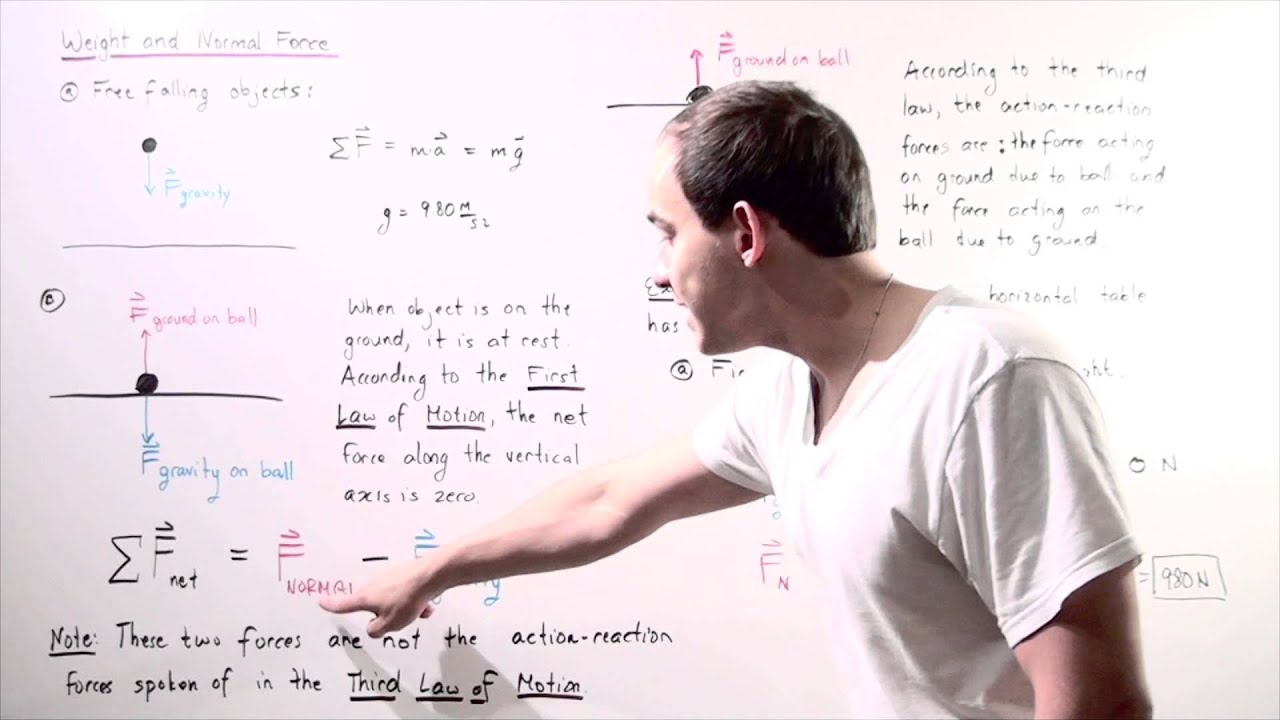 Weight and Normal Force
a Free falling objects:
F gravity
ΣF = m·a = mg
g = 980 m/s2
B
F ground on ball
F gravity on ball
When object is on the
ground, it is at rest.
According to the First
Law of Motion, the net
force along the vertical
axis is zero.
ΣF net = F NORMAL - F
Note: These two forces are not the action-reaction
forces spoken of in the Third Law of Motion.
F ground on ball
According to the third
law, the action-reaction
forces are: the force acting
on ground due to ball and
the force acting on the
ball due to ground.
horizontal table
has
a
0 N
F N
= 980 N